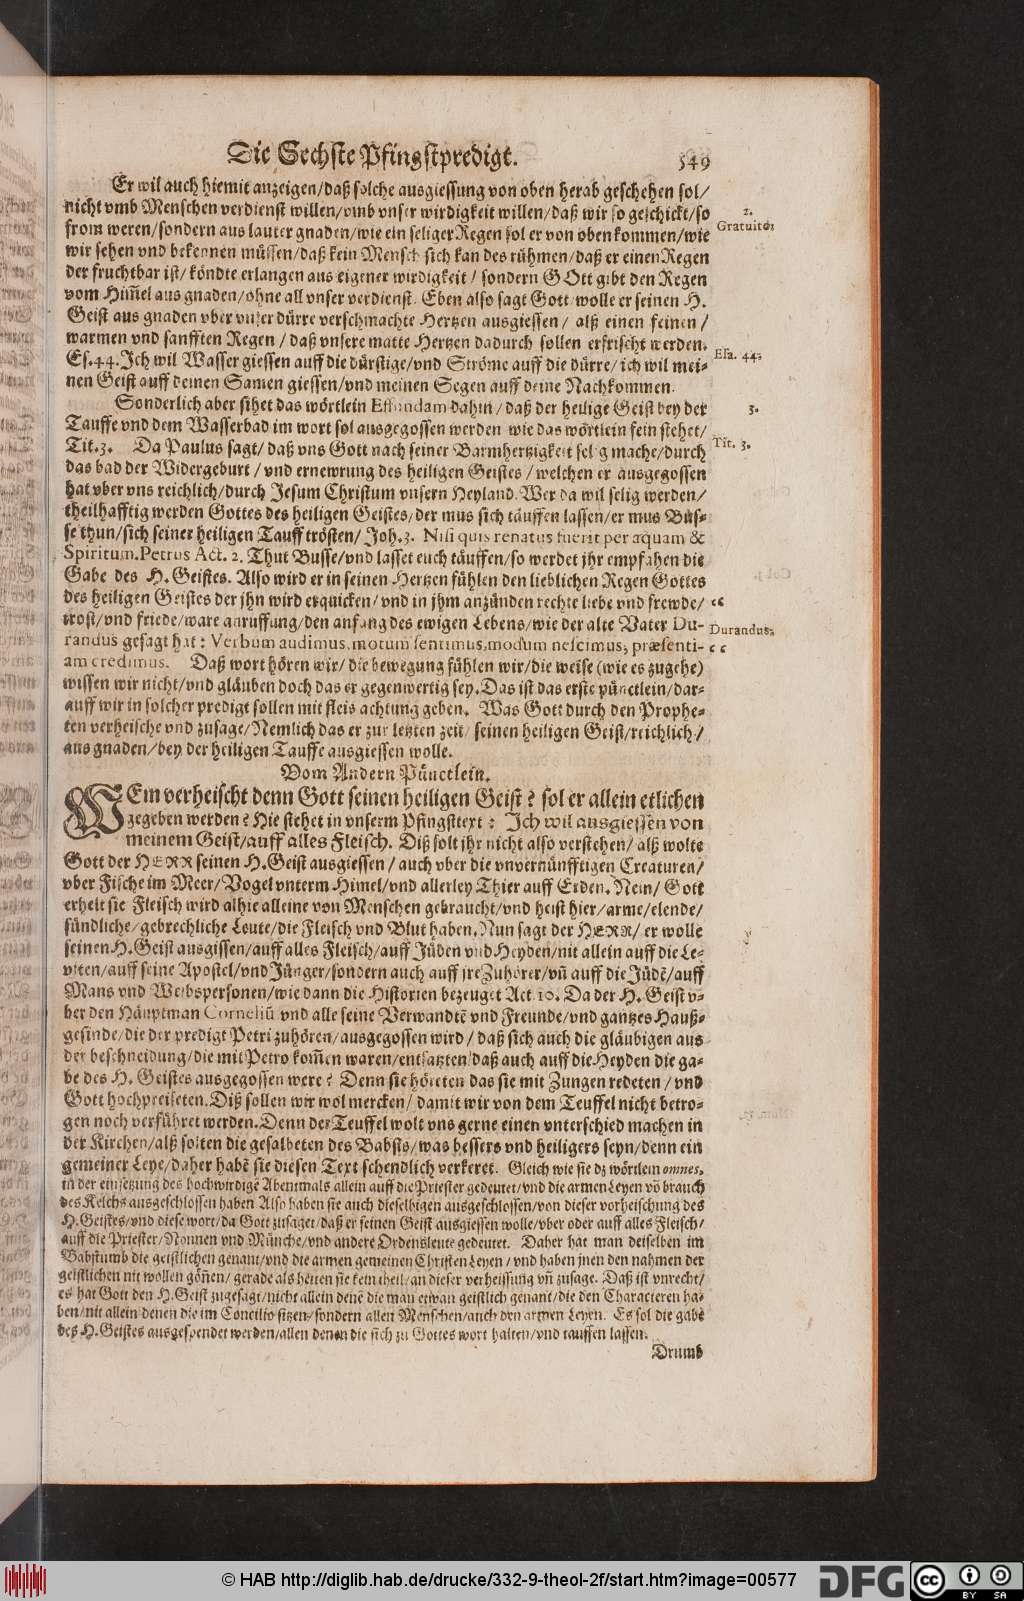 Die Sechste Pfingstpredigt. 549
Er wil auch hiemit anzeigen/daß solche ausgiessung von oben herab geschehen sol/
nicht vmb Menschen verdienst willen/vmb vnser wirdigkeit willen/daß wir so geschickt/so
2.
Gratuitò;
from weren/sondern aus lauter gnaden/wie ein seliger Regen sol er von oben kommen/wie
wir sehen vnd bekennen müssen/daß kein Mensch sich kan des rühmen/daß er einen Regen
der fruchtbar ist/köndte erlangen aus eigener wirdigkeit/sondern GOtt gibt den Regen
vom Him̃el aus gnaden/ohne all vnser verdienst. Eben also sagt Gott wolle er seinen H.
Geist aus gnaden vber vnser dürre verschmachte Hertzen ausgiessen/ alß einen feinen/
warmen vnd sanfften Regen/daß vnsere matte Hertzen dadurch sollen erfrischt werden.
Es.44. Ich wil Wasser giessen auff die dürstige/vnd Ströme auff die dürre/ich wil mei-
Esa. 44;
nen Geist auff deinen Samen giessen/vnd meinen Segen auff deine Nachkommen.
Sonderlich aber sihet das wörtlein Effundam dahin/daß der heilige Geist bey der
3.
Tauffe vnd dem Wasserbad im wort sol ausgegossen werden wie das wörtlein fein stehet/
Tit.3. Da Paulus sagt/daß vns Gott nach seiner Barmhertzigkeit selig mache/durch
Tit. 3.
das bad der Widergeburt/vnd ernewrung des heiligen Geistes/welchen er ausgegossen
hat vber vns reichlich/durch Jesum Christum vnsern Heyland. Wer da wil selig werden/
theilhafftig werden Gottes des heiligen Geistes/der mus sich täuffen lassen/er mus Bus-
se thun/sich seiner heiligen Tauff trösten/ Joh.3. Nisi quis renatus fuerit per aquam &
Spiritum. Petrus Act. 2. Thut Busse/vnd lasset euch täuffen/so werdet jhr empfahen die
Gabe des H. Geistes. Also wird er in seinen Hertzen fühlen den lieblichen Regen Gottes
des heiligen Geistes der jhn wird erquicken/vnd in jhm anzünden rechte liebe vnd frewde/
trost/vnd friede/ware anruffung/den anfang des ewigen Lebens/wie der alte Vater Du-
Durandus;
randus gesagt hat: Verbum audimus, motum sentimus, modum nescimus, præsenti-
am credimus. Daß wort hören wir/die bewegung fühlen wir/die weise (wie es zugehe)
wissen wir nicht/vnd gläuben doch das er gegenwertig sey. Das ist das erste pünctlein/dar-
auff wir in solcher predigt sollen mit fleis achtung geben. Was Gott durch den Prophe-
ten verheische vnd zusage/Nemlich das er zur letzten zeit/ seinen heiligen Geist/reichlich/
aus gnaden/bey der heiligen Tauffe ausgiessen wolle.
Vom Andern Pünctlein.
WEm verheischt denn Gott seinen heiligen Geist? sol er allein etlichen
gegeben werden? Hie stehet in vnserm Pfingsttext: Ich wil ausgiessen von
meinem Geist/auff alles Fleisch. Diß solt jhr nicht also verstehen/alß wolte
Gott der HERR seinen H. Geist ausgiessen/auch vber die vnvernünfftigen Creaturen/
vber Fische im Meer/Vogel vnterm Himel/vnd allerley Thier auff Erden. Nein/ Gott
erhelt sie Fleisch wird alhie alleine von Menschen gebraucht/vnd heist hier/arme/elende/
sündliche/gebrechliche Leute/die Fleisch vnd Blut haben. Nun sagt der HERR/ er wolle
seinen H. Geist ausgissen/auff alles Fleisch/auff Jüden vnd Heyden/nit allein auff die Le-
viten/auff seine Apostel/vnd Jünger/sondern auch auff jre Zuhörer/vñ auff die Jüdē/auff
Mans vnd Weibspersonen/wie dann die Historien bezeuget Act.10. Da der H. Geist v-
ber den Häuptman Corneliū vnd alle seine Verwandtē vnd Freunde/vnd gantzes Hauß-
gesinde/die der predigt Petri zuhören/ausgegossen wird/daß sich auch die gläubigen aus
der beschneidung/die mit Petro kom̃en waren/entsatzten/daß auch auff die Heyden die ga-
be des H. Geistes ausgegossen were? Denn sie höreten das sie mit Zungen redeten/vnd
Gott hochpreiseten. Diß sollen wir wol mercken/damit wir von dem Teuffel nicht betro-
gen noch verführet werden. Denn der Teuffel wolt vns gerne einen vnterschied machen in
der Kirchen/alß solten die gesalbeten des Babsts/was bessers vnd heiligers seyn/denn ein
gemeiner Leye/daher habē sie diesen Text schendlich verkeret. Gleich wie sie dz wörtlein omnes,
in der einsetzung des hochwirdigē Abentmals allein auff die Priester gedeutet/vnd die armen Leyen vō brauch
des Kelchs ausgeschlossen haben Also haben sie auch dieselbigen ausgeschlossen/von dieser vorheischung des
H. Geistes/vnd diese wort/da Gott zusaget/daß er seinen Geist ausgiessen wolle/vber oder auff alles Fleisch/
auff die Priester/Nonnen vnd Münche/vnd andere Ordensleute gedeutet. Daher hat man dieselben im
Babstumb die geistlichen genant/vnd die armen gemeinen Christen Leyen/vnd haben jnen den nahmen der
geistlichen nit wollen gön̄en/gerade als hetten sie kein theil/an dieser verheissung vñ zusage. Daß ist vnrecht/
es hat Gott den H. Geist zugesagt/nicht allein denē die man etwan geistlich genant/die den Characteren ha-
ben/nit allein denen die im Concilio sitzen/sondern allen Menschen/auch den armen Leyen. Es sol die gabe
des H. Geistes ausgespendet werden/allen denen die sich zu Gottes wort halten/vnd tauffen lassen.
Drumb
© HAB http://diglib.hab.de/drucke/332-9-theol-2f/start.htm?image=00577 DFG cc BY SA